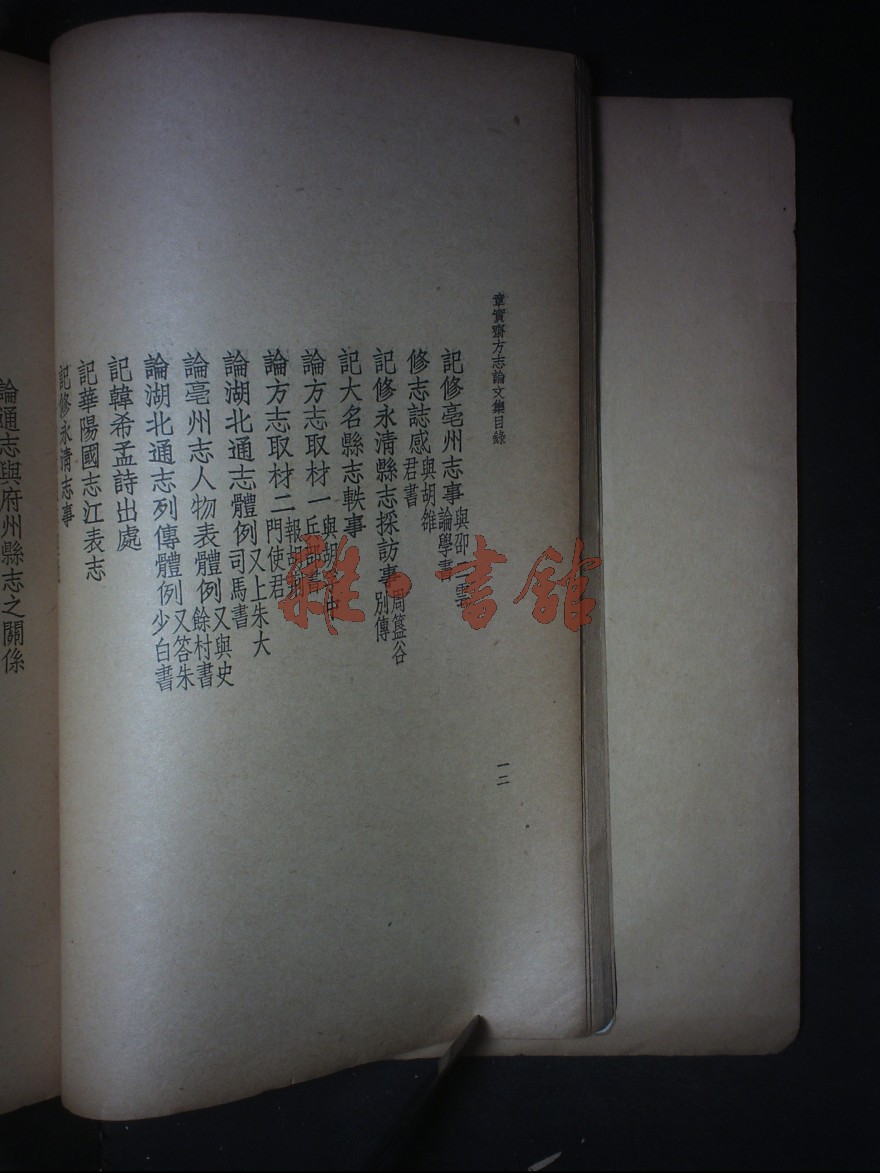 章實齋方志論文集目錄
一二
記修亳州志事 與邵二雲論學書
修志誌感 與胡雒君書
記修永清縣志採訪事 周筤谷別傳
記大名縣志軼事
論方志取材一
論方志取材二 門使君
論湖北通志體例 又上朱大司馬書
論亳州志人物表體例 又與史餘村書
論湖北通志列傳體例 又答朱少白書
記韓希孟詩出處
記華陽國志江表志
記修永清志事
論通志與府州縣志之關係
雜·書館